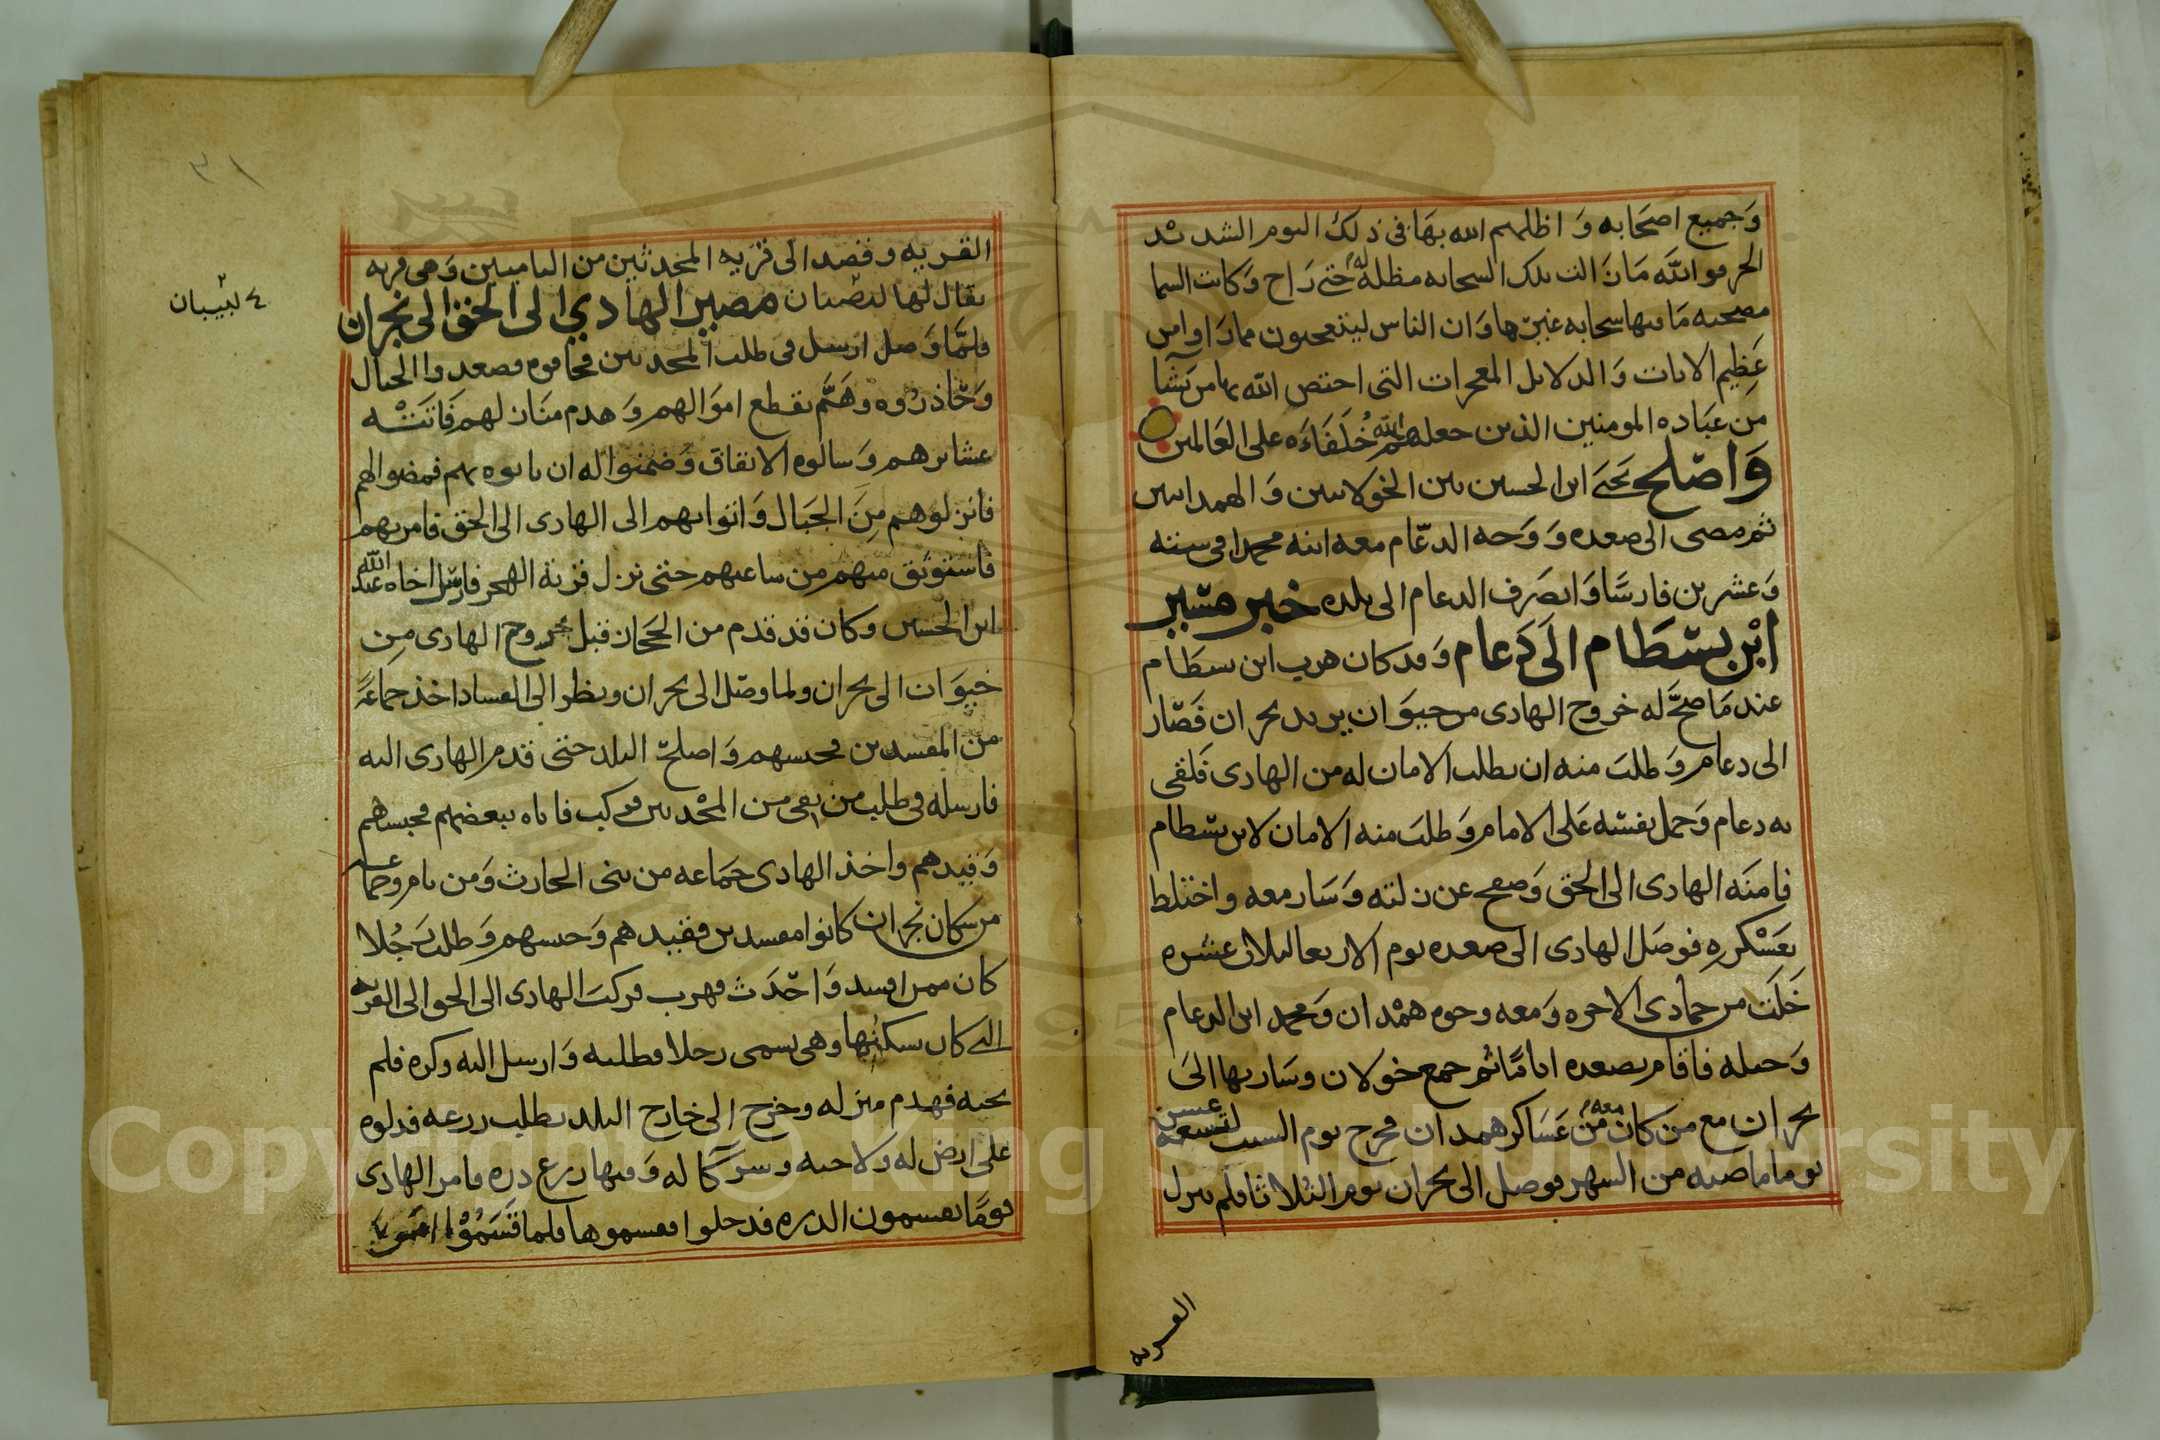 وجميع اصحابه و اظلهم الله بها فى ذلك اليوم الشديد
الحر فوالله مازالت تلك السحابه مظلة له حتى راح وكانت السما
مصحيه ما فيها سحابه غيرها وان الناس ليتعجبون مماراوا من
عظيم الايات والدلايل المعجزات التى اختص الله بها من يشا
من عباده المومنين الذين جعلهم الله خلفاءه على العالمين
واصلح يحيى ابن الحسين بين الخولانيين والهمدانيين
ثم مضى الى صعده ووجه الدعام معه ابنه محمدا فى ستة
وعشرين فارسا وانصرف الدعام الى بلده خبر مسير
ابن بسطام الى دعام وقد كان هرب ابن بسطام
عند ما صح له خروج الهادى من خيوان يريد نجران فصار
الى دعام وطلب منه ان يطلب الامان له من الهادى فلقى
به دعام وحمل نفسه على الامام وطلب منه الامان لابن بسطام
فامنه الهادى الى الحق وصفح عن زلته وسار معه واختلط
بعسكره فوصل الهادى الى صعده يوم الاربعا لثلاث عشره
خلت من جمادى الاخره ومعه وجوه همدان ومحمد ابن الدعام
وخيله فاقام بصعده اياما ثم جمع خولان وسار بها الى
نجران مع من كان معه من عساكر همدان فخرج يوم السبت لتسعة عشر
يوما ماضيه من الشهر فوصل الى نجران يوم الثلاثا فلم ينزل
القريه
٣١
القريه وقصد الى قريه المحدثين من الياميين وهى قريه
يقال لها لبينان مصير الهادي الى الحق الى نجران
٤ لبيبان
فلما وصل ارسل فى طلب المحدثين فخافوه فصعدوا الجبال
وحاذروه وهم بقطع اموالهم وهدم منازلهم فاتته
عشائرهم وسالوه الانفاق وضمنوا له ان ياتوه بهم فمضوا لهم
فانزلوهم من الجبال واتوا بهم الى الهادى الى الحق فامر بهم
فاستوثق منهم من ساعتهم حتى نزل قرية الهجر فارسل اخاه عبد الله
ابن الحسين وكان قد قدم من الحجاز قبل خروج الهادى من
خيوان الى نجران ولما وصل الى نجران ونظر الى الفساد اخذ جماعة
من المفسدين فحبسهم واصلح البلد حتى قدم الهادى اليه
فارسله فى طلب من بقى من المحدثين فركب فاتاه ببعضهم فحبسهم
وقيدهم واخذ الهادى جماعه من بنى الحارث ومن يام وجماعه
من سكان نجران كانوا مفسدين فقيدهم وحبسهم وطلب رجلا
كان ممن افسد واحدث فهرب فركب الهادى الى الحق الى القريه
التى كان يسكنها وهى تسمى رجلا فطلبه وارسل اليه وكره فلم
يجبه فهدم منزله وخرج الى خارج البلد يطلب زرعه فدلوه
على ارض له ولاخيه وشركا له وفيها زرع ذره فامر الهادى
يوما يقسمون الذره فدخلوا فقسموها فلما قسموا